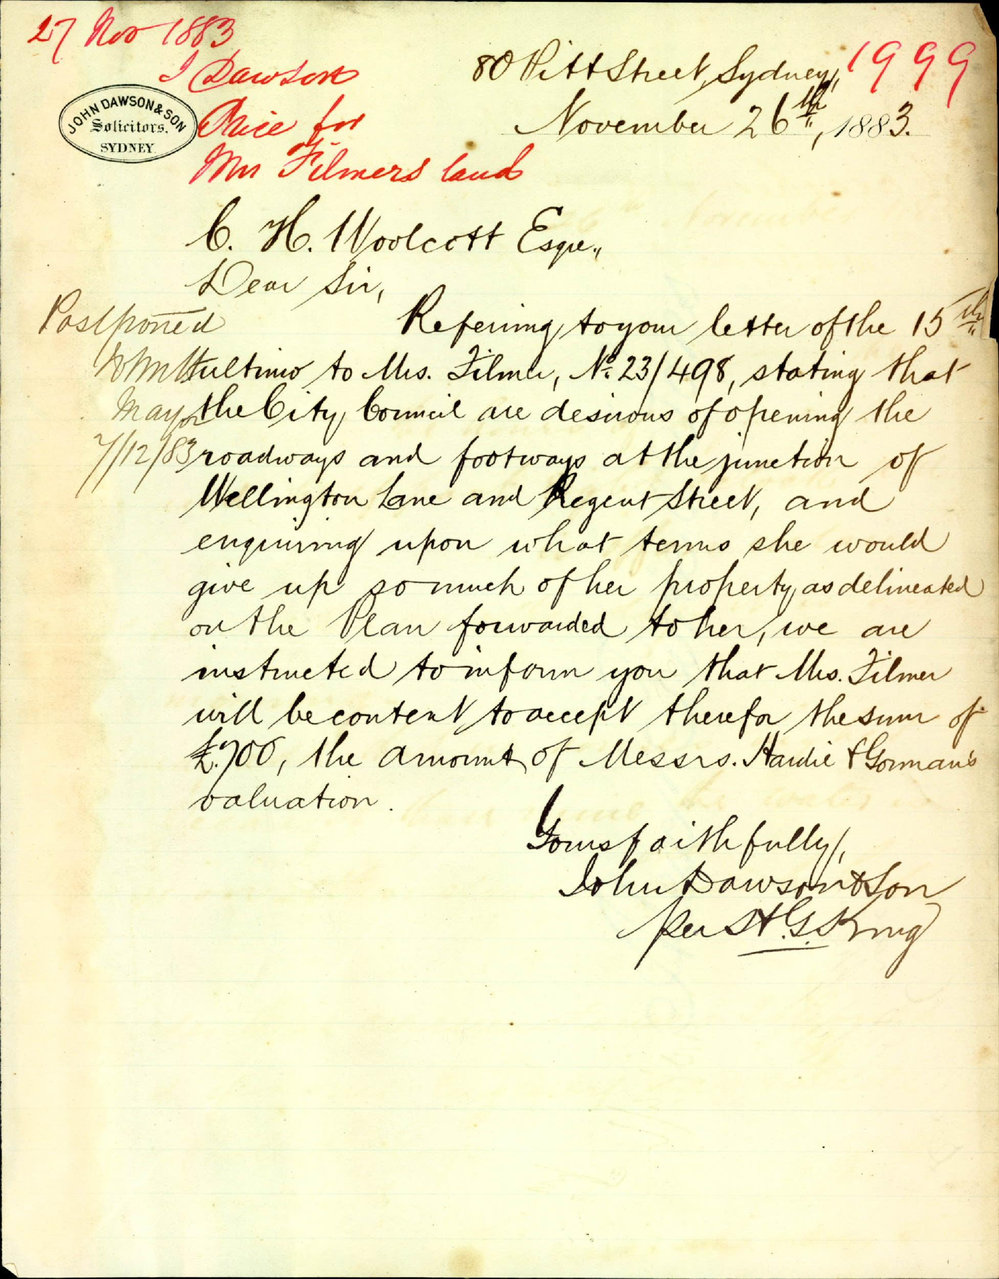 27 Nov 1883
J Dawson
Price for
Mrs Filmers land
1999
JOHN DAWSON & SON
Solicitors.
SYDNEY
80 Pitt Street, Sydney,
November 26th, 1883.
C. H. Woolcott Esqre.,
Dear Sir,
Postponed
Mayor
7/12/83
Referring to your letter of the 15th
ultimo to Mrs. Filmer, No. 23/498, stating that
the City Council are desirous of opening the
roadways and footways at the junction of
Wellington Lane and Regent Street, and
enquiring upon what terms she would
give up so much of her property, as delineated
on the Plan forwarded to her, we are
instructed to inform you that Mrs. Filmer
will be content to accept therefor the sum of
£700, the amount of Messrs. Hardie & Gorman's
valuation.
Yours faithfully,
John Dawson & Son
per H. G. King